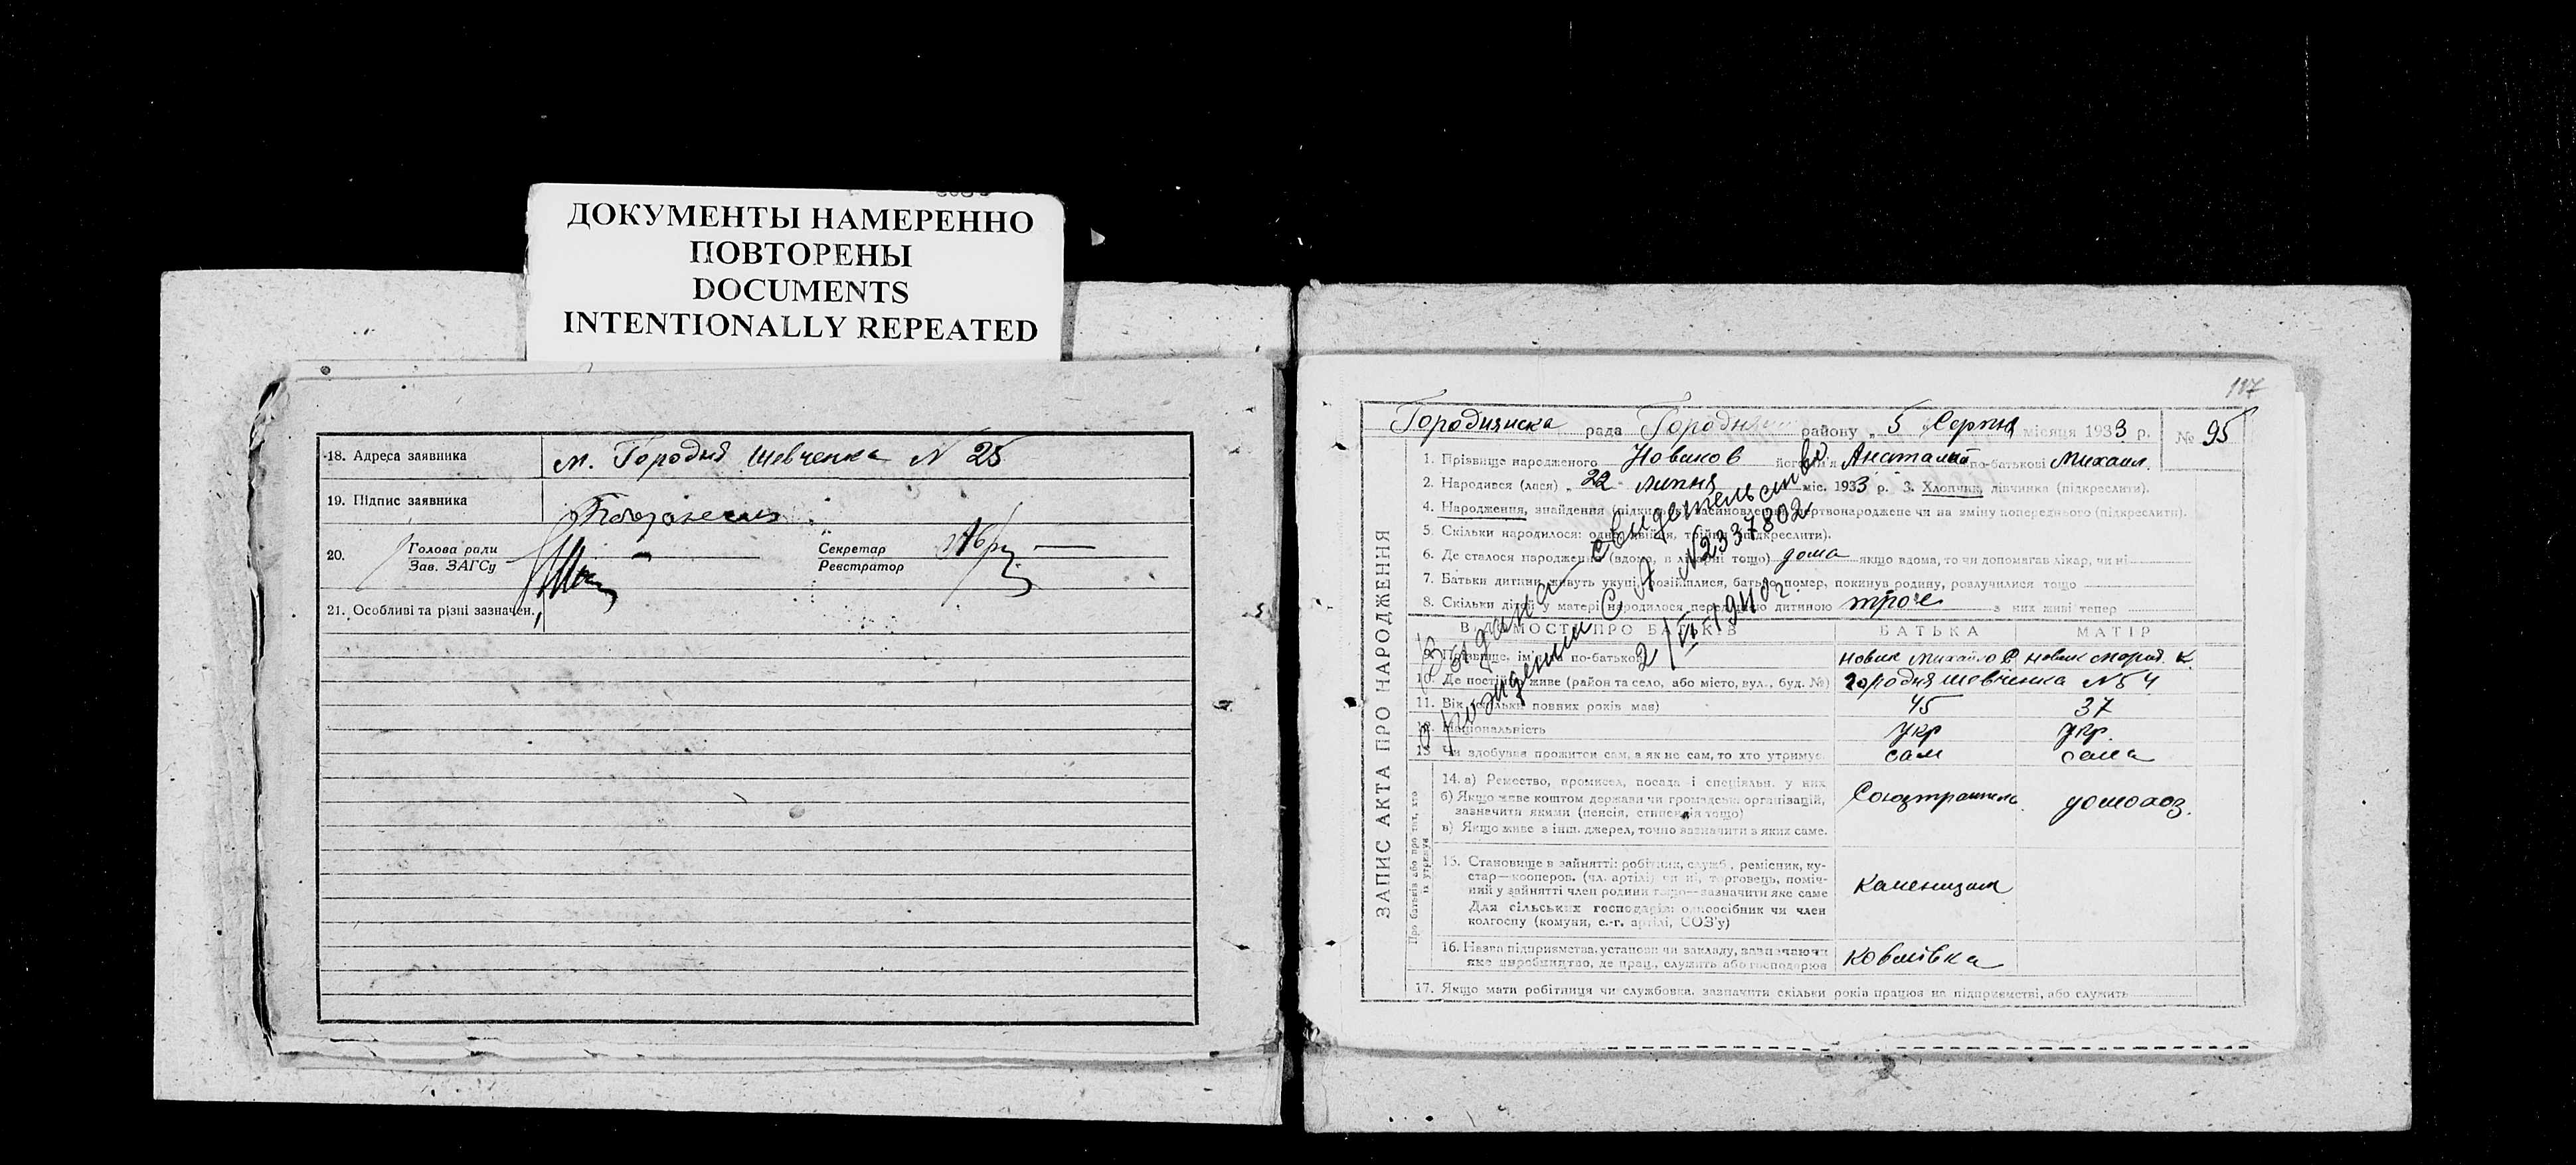 ДОКУМЕНТЫ НАМЕРЕННО
ПОВТОРЕНЫ
DOCUMENTS
INTENTIONALLY REPEATED
18. Адреса заявника м. Городня Шевченка N 25
19. Підпис заявника
20. Голова ради
Зав. ЗАГСу
Секретар
Реєстратор
21. Особливі та різні зазначен.
117
Городнянска рада Городня району „ 5 Серпня місяця 1933 р. № 95
ЗАПИС АКТА ПРО НАРОДЖЕННЯ
1. Прізвище народженого Новиков його ім'я Анаталий по-батькові Михаил.
2. Народився (лася) „ 22 " липня міс. 1933 р. 3. Хлопчик, дівчинка (підкреслити).
4. Народження, знайдення (підкинуте), усиновлення, мертвонароджене чи на зміну попереднього (підкреслити).
5. Скільки народилося: одно, двійня, трійня (підкреслити).
6. Де сталося народження (вдома, в лікарні тощо) дома якщо вдома, то чи допомагав лікар, чи ні
7. Батьки дитини живуть укупі, розійшлися, батько помер, покинув родину, розлучилися тощо
8. Скільки дітей у матері народилося перед цією дитиною трое з них живі тепер
Видана свидетельство
о рождении СА N 2337802
2/VI-1941 г.
ВІДОМОСТІ ПРО БАТЬКІВ БАТЬКА МАТІР
9. Прізвище, ім'я та по-батькові Новик Михайло Новик К.
10. Де постійно живе (район та село, або місто, вул., буд. №) Городня Шевченка N 54
11. Вік (скільки повних років має) 45 37
12. Національність Укр Укр.
13. Чи здобував прожиток сам, а як не сам, то хто утримує. сам сама
Про батьків або про тих, хто їх утримує
14. а) Ремество, промисел, посада і спеціяльн. у них
б) Якщо живе коштом держави чи громадськ. організацій,
зазначити якими (пенсія, стипендія тощо)
в) Якщо живе з інш. джерел, точно зазначити з яких саме.
домохоз.
15. Становище в зайнятті: робітник, служб., ремісник, ку-
стар—коопероб. (чл. артілі) чи ні, торговець, поміч-
ний у зайнятті член родини тощо—зазначити яке саме
Для сільських господарів: одноосібник чи член
колгоспу (комуни, с.-г. артілі, СОЗ'у)
каменщик
16. Назва підприємства, установи чи закладу, зазначаючи
яке виробництво, де прац., служить або господарює
17. Якщо мати робітниця чи службовка, зазначити скільки років працює на підприємстві, або служить